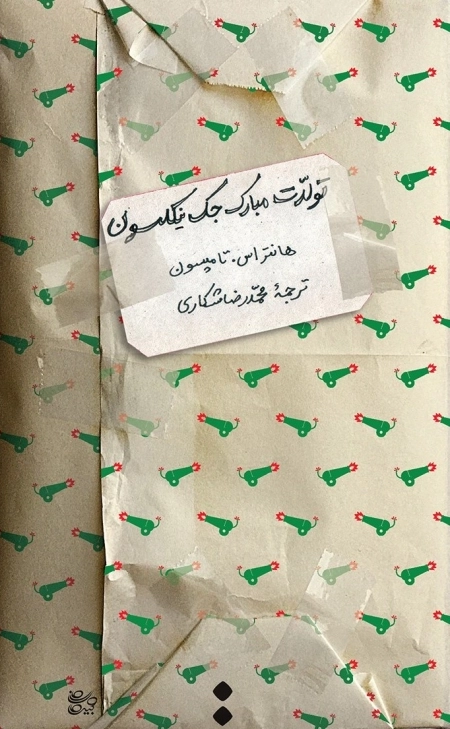 تولّدت مبارک جک نیکلسون
هانتر اس. تامپسون
ترجمهٔ محمّدرضا شکاری